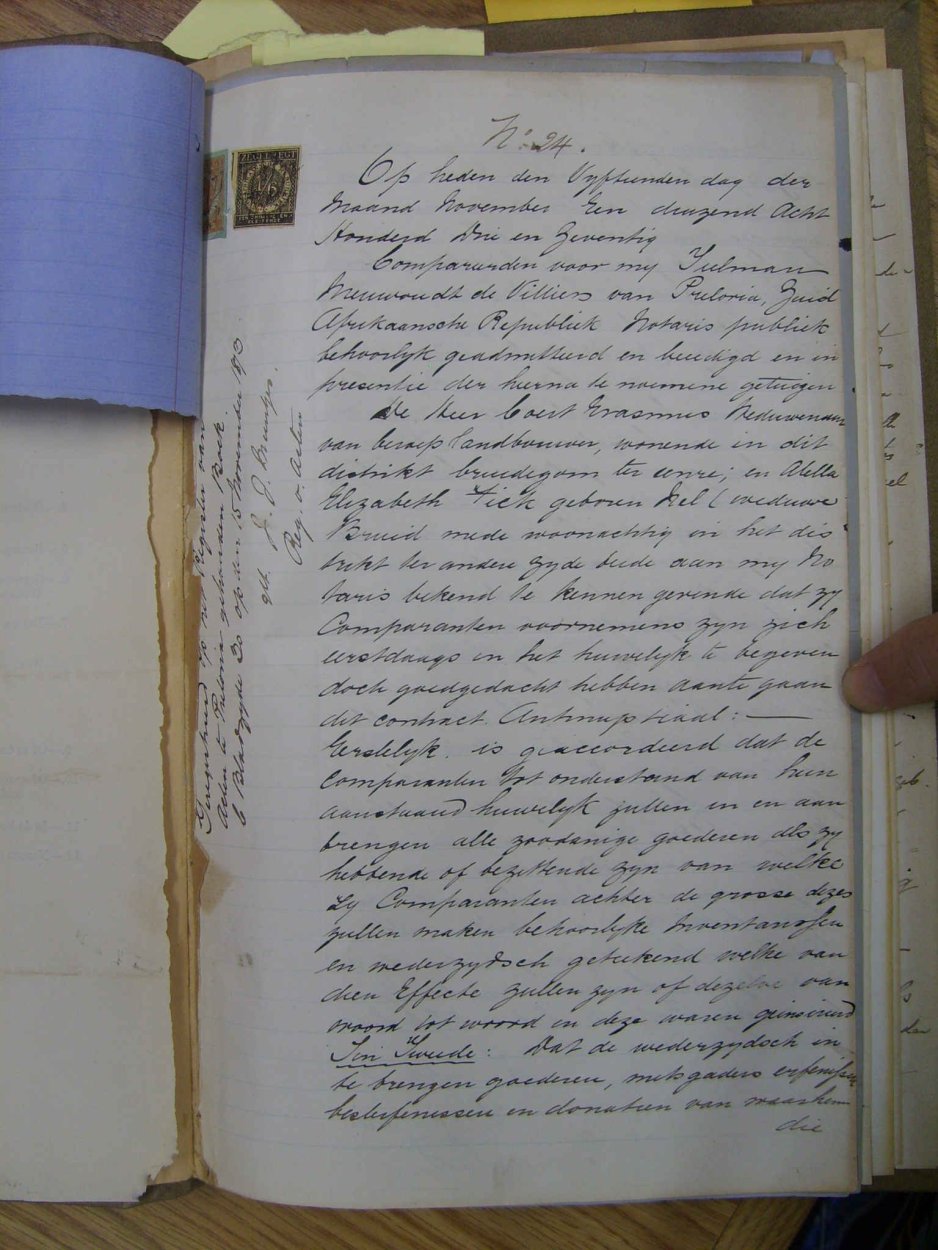 No. 24.
Op heden den Vyftienden dag der
Maand November Een duizend Acht
Honderd Drie en Zeventig
Compareerden voor my Tielman
Nieuwoudt de Villiers van Pretoria, Zuid
Afrikaansche Republiek Notaris publiek
behoorlyk geadmitteerd en beeedigd en in
presentie der hierna te noemene getuigen
De Heer Coert Erasmus Weduwenaar
van beroep landbouwer, wonende in dit
distrikt bruidegom ter eenre; en Abella
Elizabeth Fick geboren Nel (weduwe
Bruid mede woonachtig in het dis
trikt ter andere zyde beide aan my No
taris bekend te kennen gevende dat zy
Comparanten voornemens zyn zich
eerstdaags in het huwelyk te begeven
doch goedgedacht hebben aante gaan
dit contract Antenuptiaal: —
Eerstelyk is geaccordeerd dat de
Comparanten tot onderstand van hun
aanstaand huwelyk zullen in en aan
brengen alle zoodanige goederen als zy
hebbende of bezittende zyn van welke
Zy Comparanten achter de grosse dezes
zullen maken behoorlyke Inventarissen
en wederzydsch geteekend welke van
dien Effecte zullen zyn of dezelve van
woord tot woord in deze waren geinsereerd
Ten Tweede: Dat de wederzydsch in
te brengen goederen, mitsgaders erfenissen
besterfenissen en donatien van waarhem
die
Geregistreerd in het Register van
Acten te Pretoria gehouden boek
C Bladzyde 23 op den 15 November 1873
get. J. J.
Reg. v. Acten
ZEGELREGT
1/6